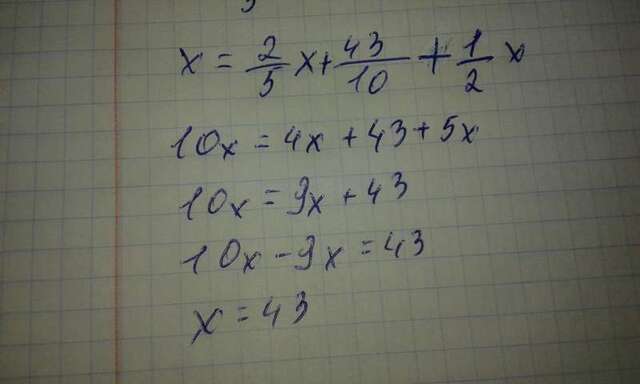 x = 2/5 x + 43/10 + 1/2 x
10x = 4x + 43 + 5x
10x = 9x + 43
10x - 9x = 43
x = 43